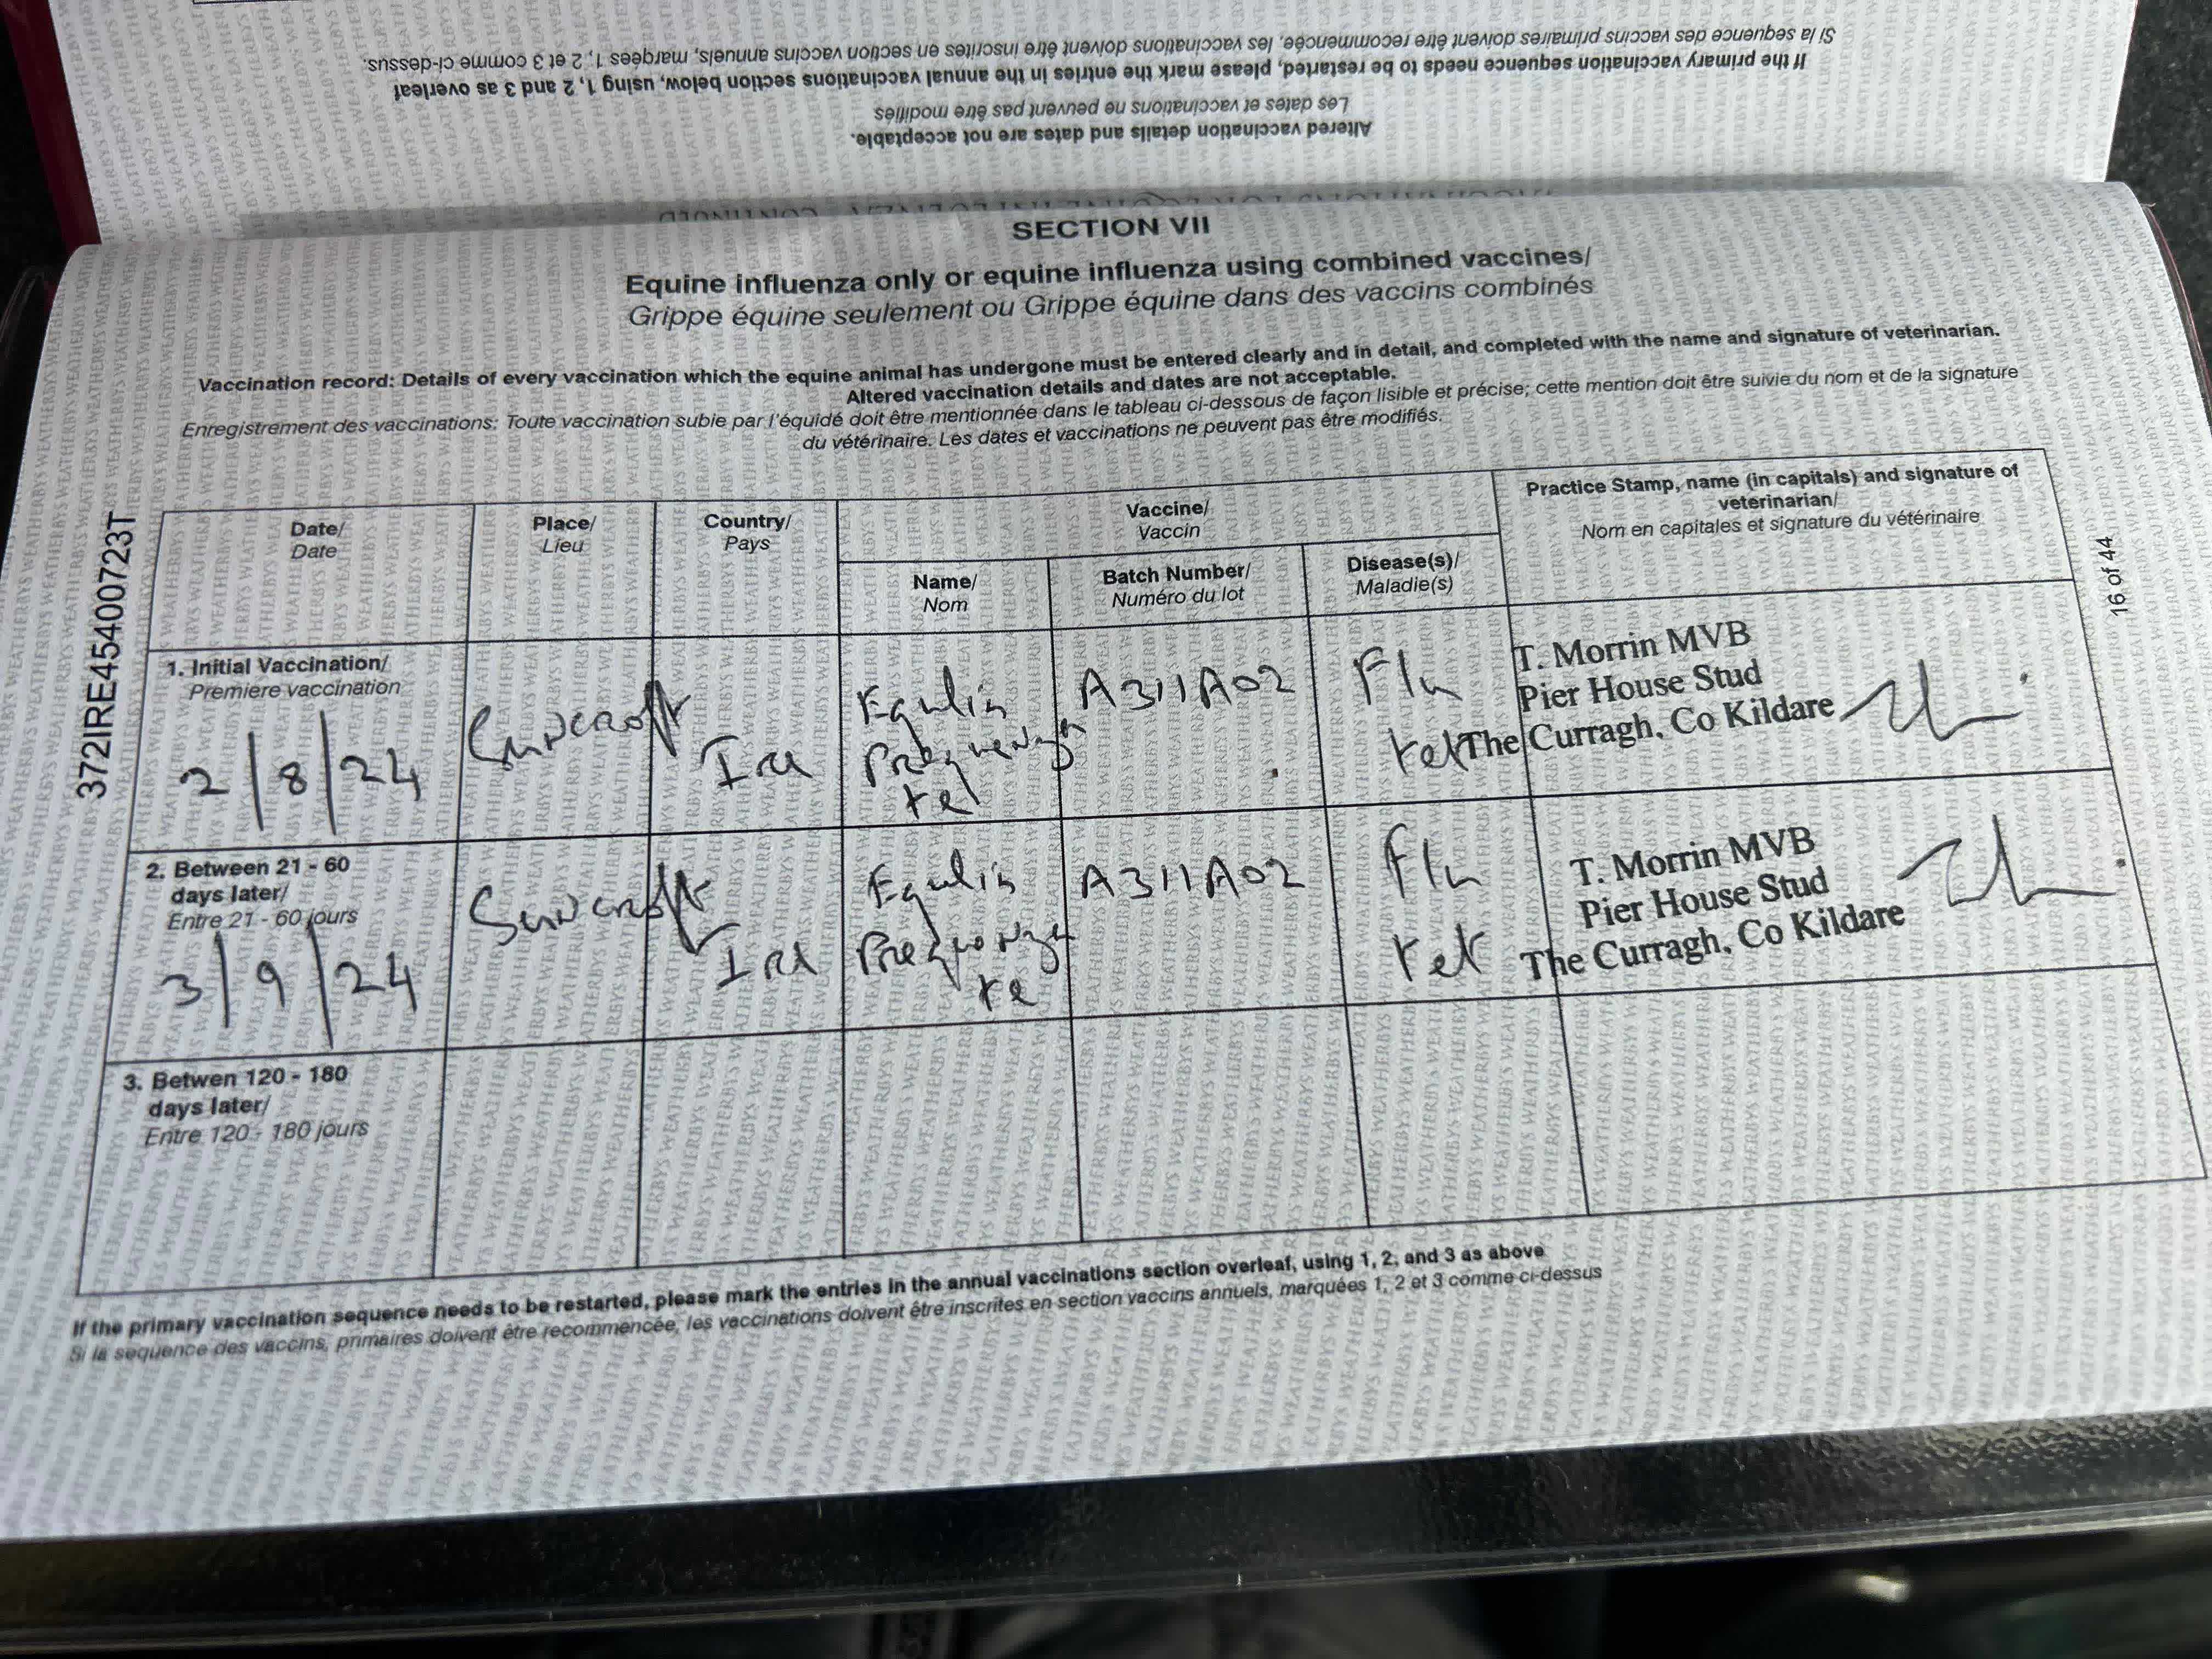 Si la sequence des vaccins primaires doivent être recommencée, les vaccinations doivent être inscrites en section vaccins annuels, marqées 1, 2 et 3 comme ci-dessus.
If the primary vaccination sequence needs to be restarted, please mark the entries in the annual vaccinations section below, using 1, 2 and 3 as overleaf
Les dates et vaccinations ne peuvent pas être modifiés
Altered vaccination details and dates are not acceptable.
SECTION VII
Equine influenza only or equine influenza using combined vaccines/
Grippe équine seulement ou Grippe équine dans des vaccins combinés
Vaccination record: Details of every vaccination which the equine animal has undergone must be entered clearly and in detail, and completed with the name and signature of veterinarian.
Altered vaccination details and dates are not acceptable.
Enregistrement des vaccinations: Toute vaccination subie par l'équidé doit être mentionnée dans le tableau ci-dessous de façon lisible et précise; cette mention doit être suivie du nom et de la signature
du vétérinaire. Les dates et vaccinations ne peuvent pas être modifiés.
372IRE45400723T
16 of 44
Date/
Date
Place/
Lieu
Country/
Pays
Vaccine/
Vaccin
Name/
Nom
Batch Number/
Numéro du lot
Disease(s)/
Maladie(s)
Practice Stamp, name (in capitals) and signature of
veterinarian/
Nom en capitales et signature du vétérinaire
1. Initial Vaccination/
Premiere vaccination
2/8/24
Suncroft
Ire
Equilis
Prequenza
te
A311A02
Flu
tet
T. Morrin MVB
Pier House Stud
The Curragh, Co Kildare
2. Between 21 - 60
days later/
Entre 21 - 60 jours
3/9/24
Suncroft
Ire
Equilis
Prequenza
te
A311A02
Flu
tet
T. Morrin MVB
Pier House Stud
The Curragh, Co Kildare
3. Betwen 120 - 180
days later/
Entre 120 - 180 jours
If the primary vaccination sequence needs to be restarted, please mark the entries in the annual vaccinations section overleaf, using 1, 2, and 3 as above
Si la sequence des vaccins, primaires doivent être recommencée, les vaccinations doivent être inscrites en section vaccins annuels, marquées 1, 2 et 3 comme ci-dessus